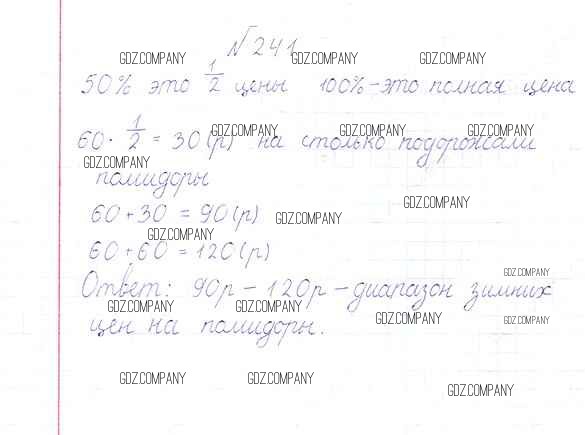 №241
GDZ.COMPANY GDZ.COMPANY GDZ.COMPANY
50% это 1/2 цены 100%-это полная цена
GDZ.COMPANY GDZ.COMPANY GDZ.COMPANY
60 · 1/2 = 30 (р) на столько подорожали
GDZ.COMPANY
помидоры
GDZ.COMPANY
60 + 30 = 90 (р)
GDZ.COMPANY
GDZ.COMPANY
60 + 60 = 120 (р)
GDZ.COMPANY
Ответ: 90р - 120р - диапазон зимних
GDZ.COMPANY GDZ.COMPANY GDZ.COMPANY GDZ.COMPANY
цен на помидоры.
GDZ.COMPANY GDZ.COMPANY GDZ.COMPANY